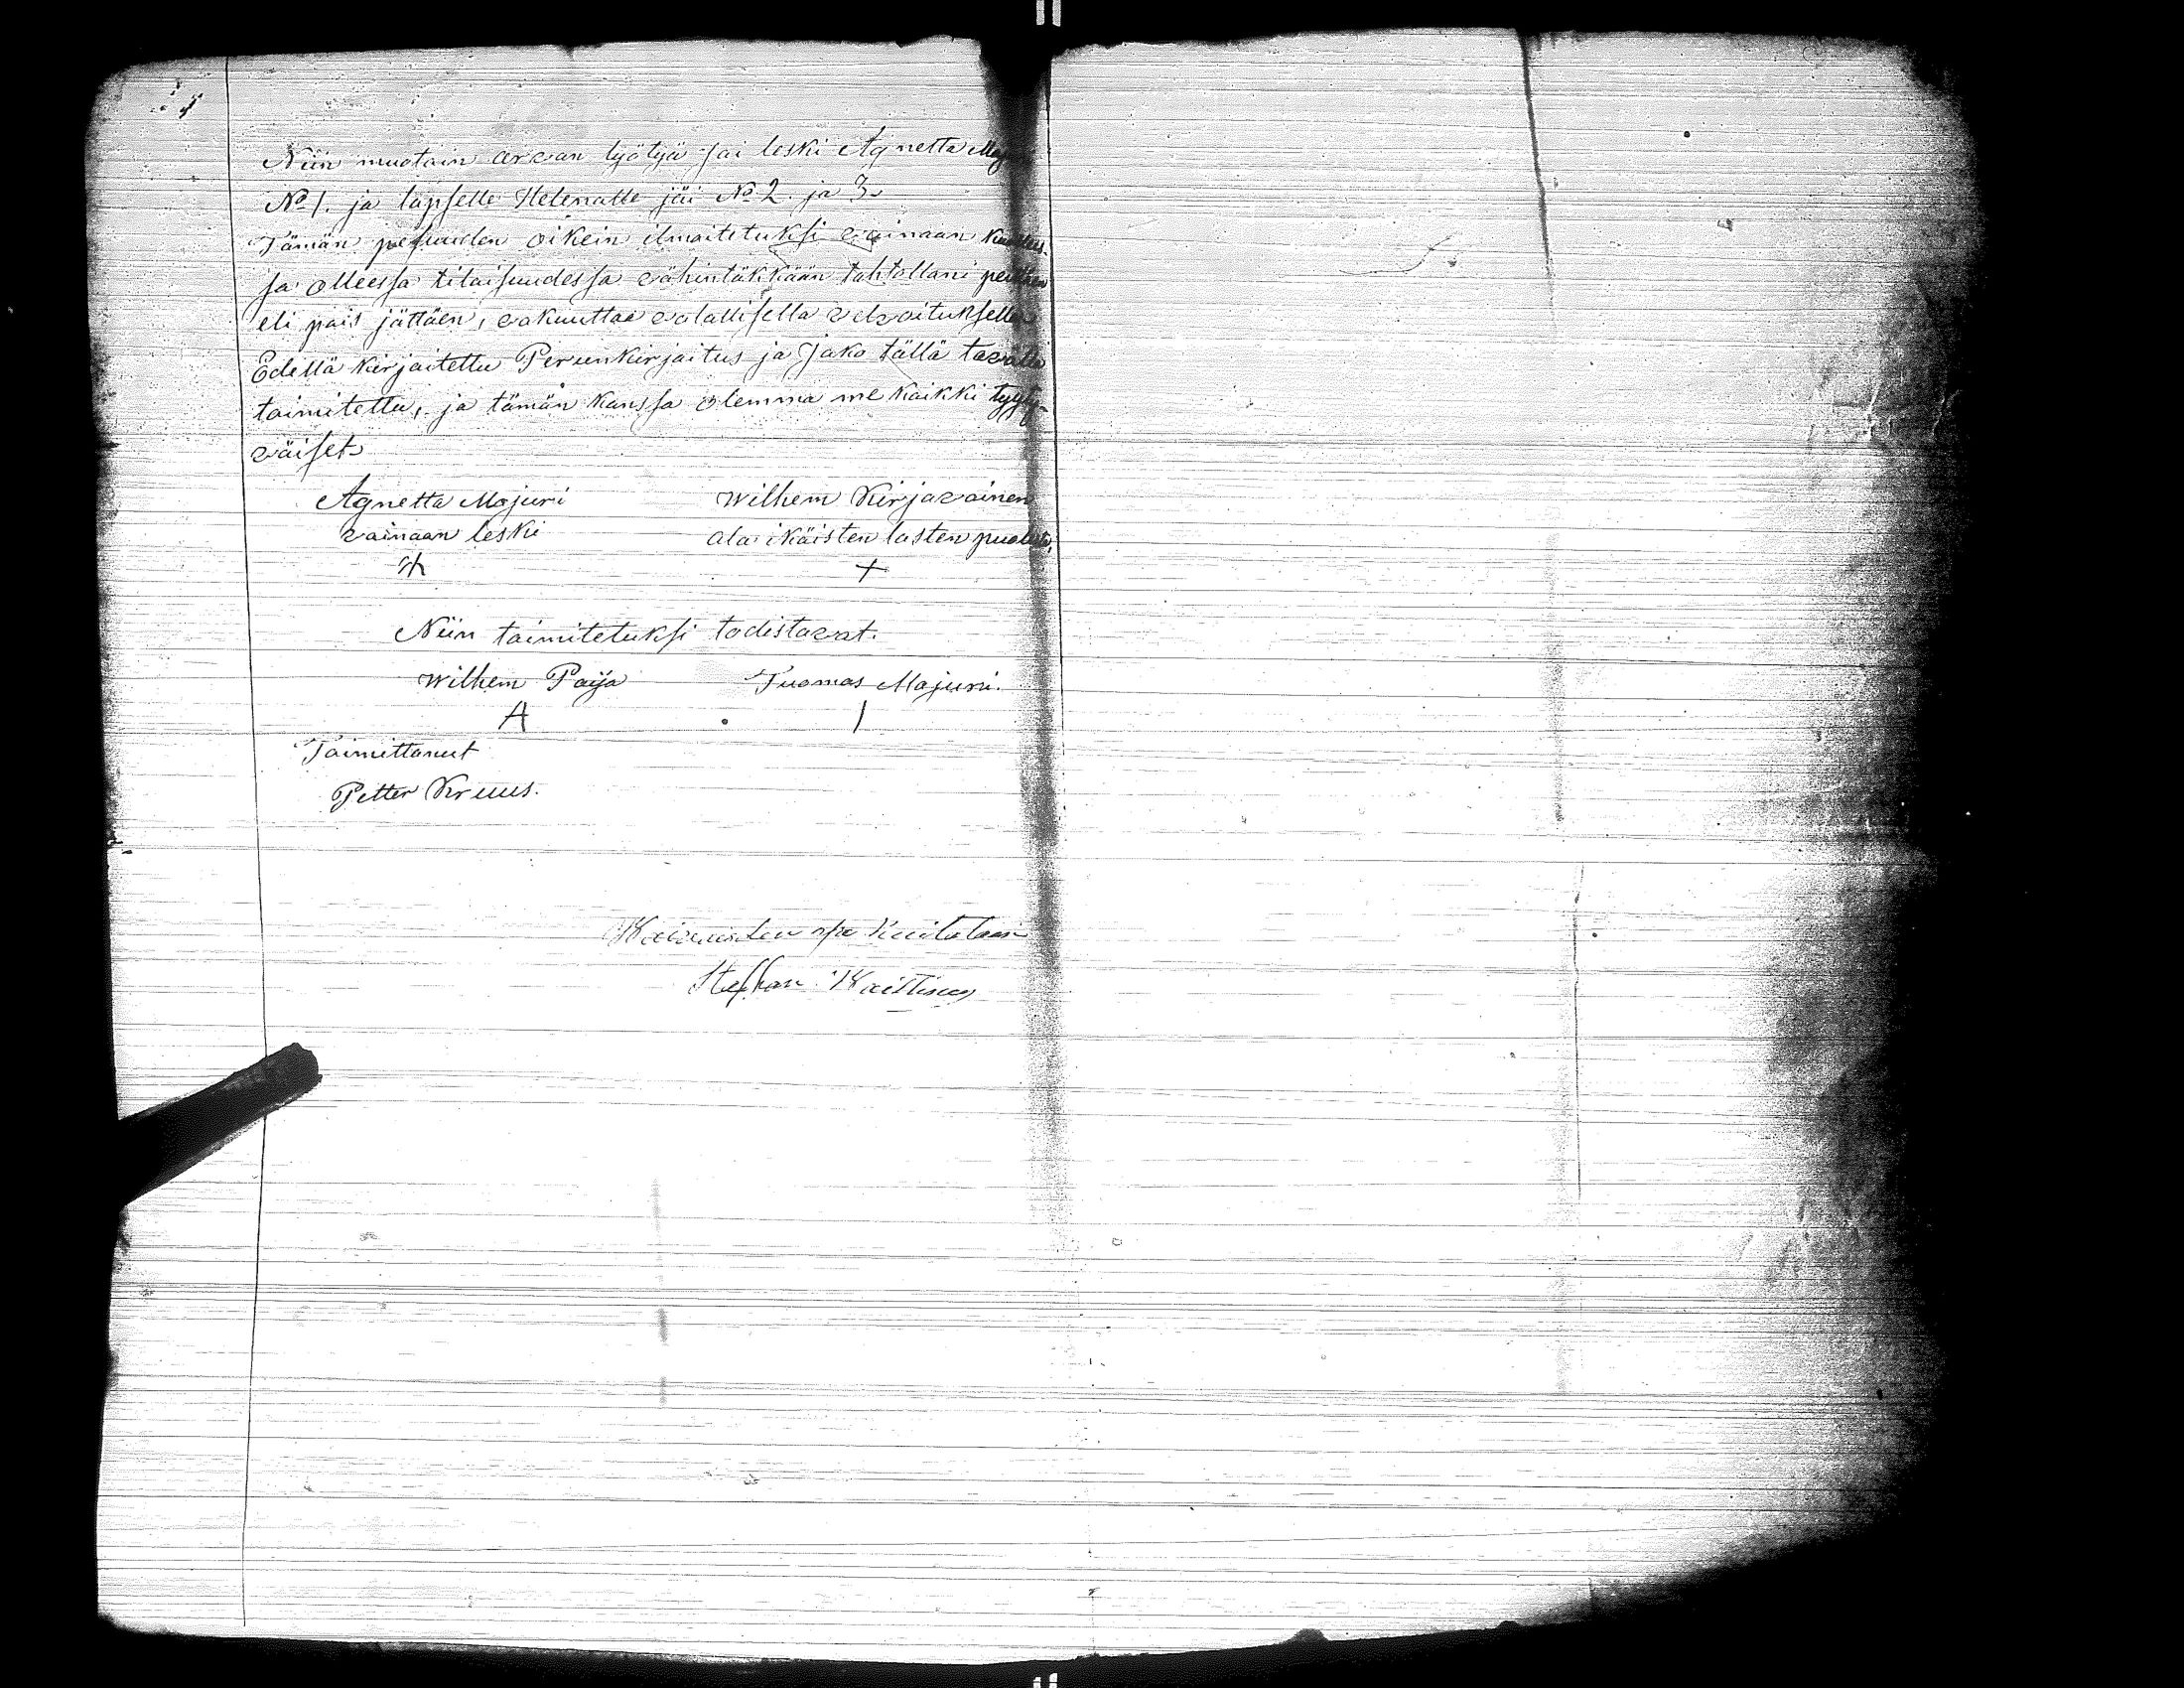 Niin muotoin arvan lyötyä sai leski Agnetta
No 1. ja lapselle Helenalle jäi No 2. ja 3.
Tämän pesuuden oikein ilmoitetuksi vainaan kuolles-
sa olleessa tilaisuudessa vähintäkkään tahtollani peittäen
eli pois jättäen, vakuuttaa valallisella velvoituksella
Edellä kirjoitettu Perunkirjoitus ja Jako tällä tavalla
toimitettu, ja tämän kanssa olemma me kaikki tyyty-
väiset
Agnetta Majuri Wilhem Kirjavainen
vainaan leski ala ikäisten lasten puolesta,
Niin toimitetuksi todistavat.
Wilhem Paija Tuomas Majuri.
Toimittanut
Petter Kruus.
Stephan